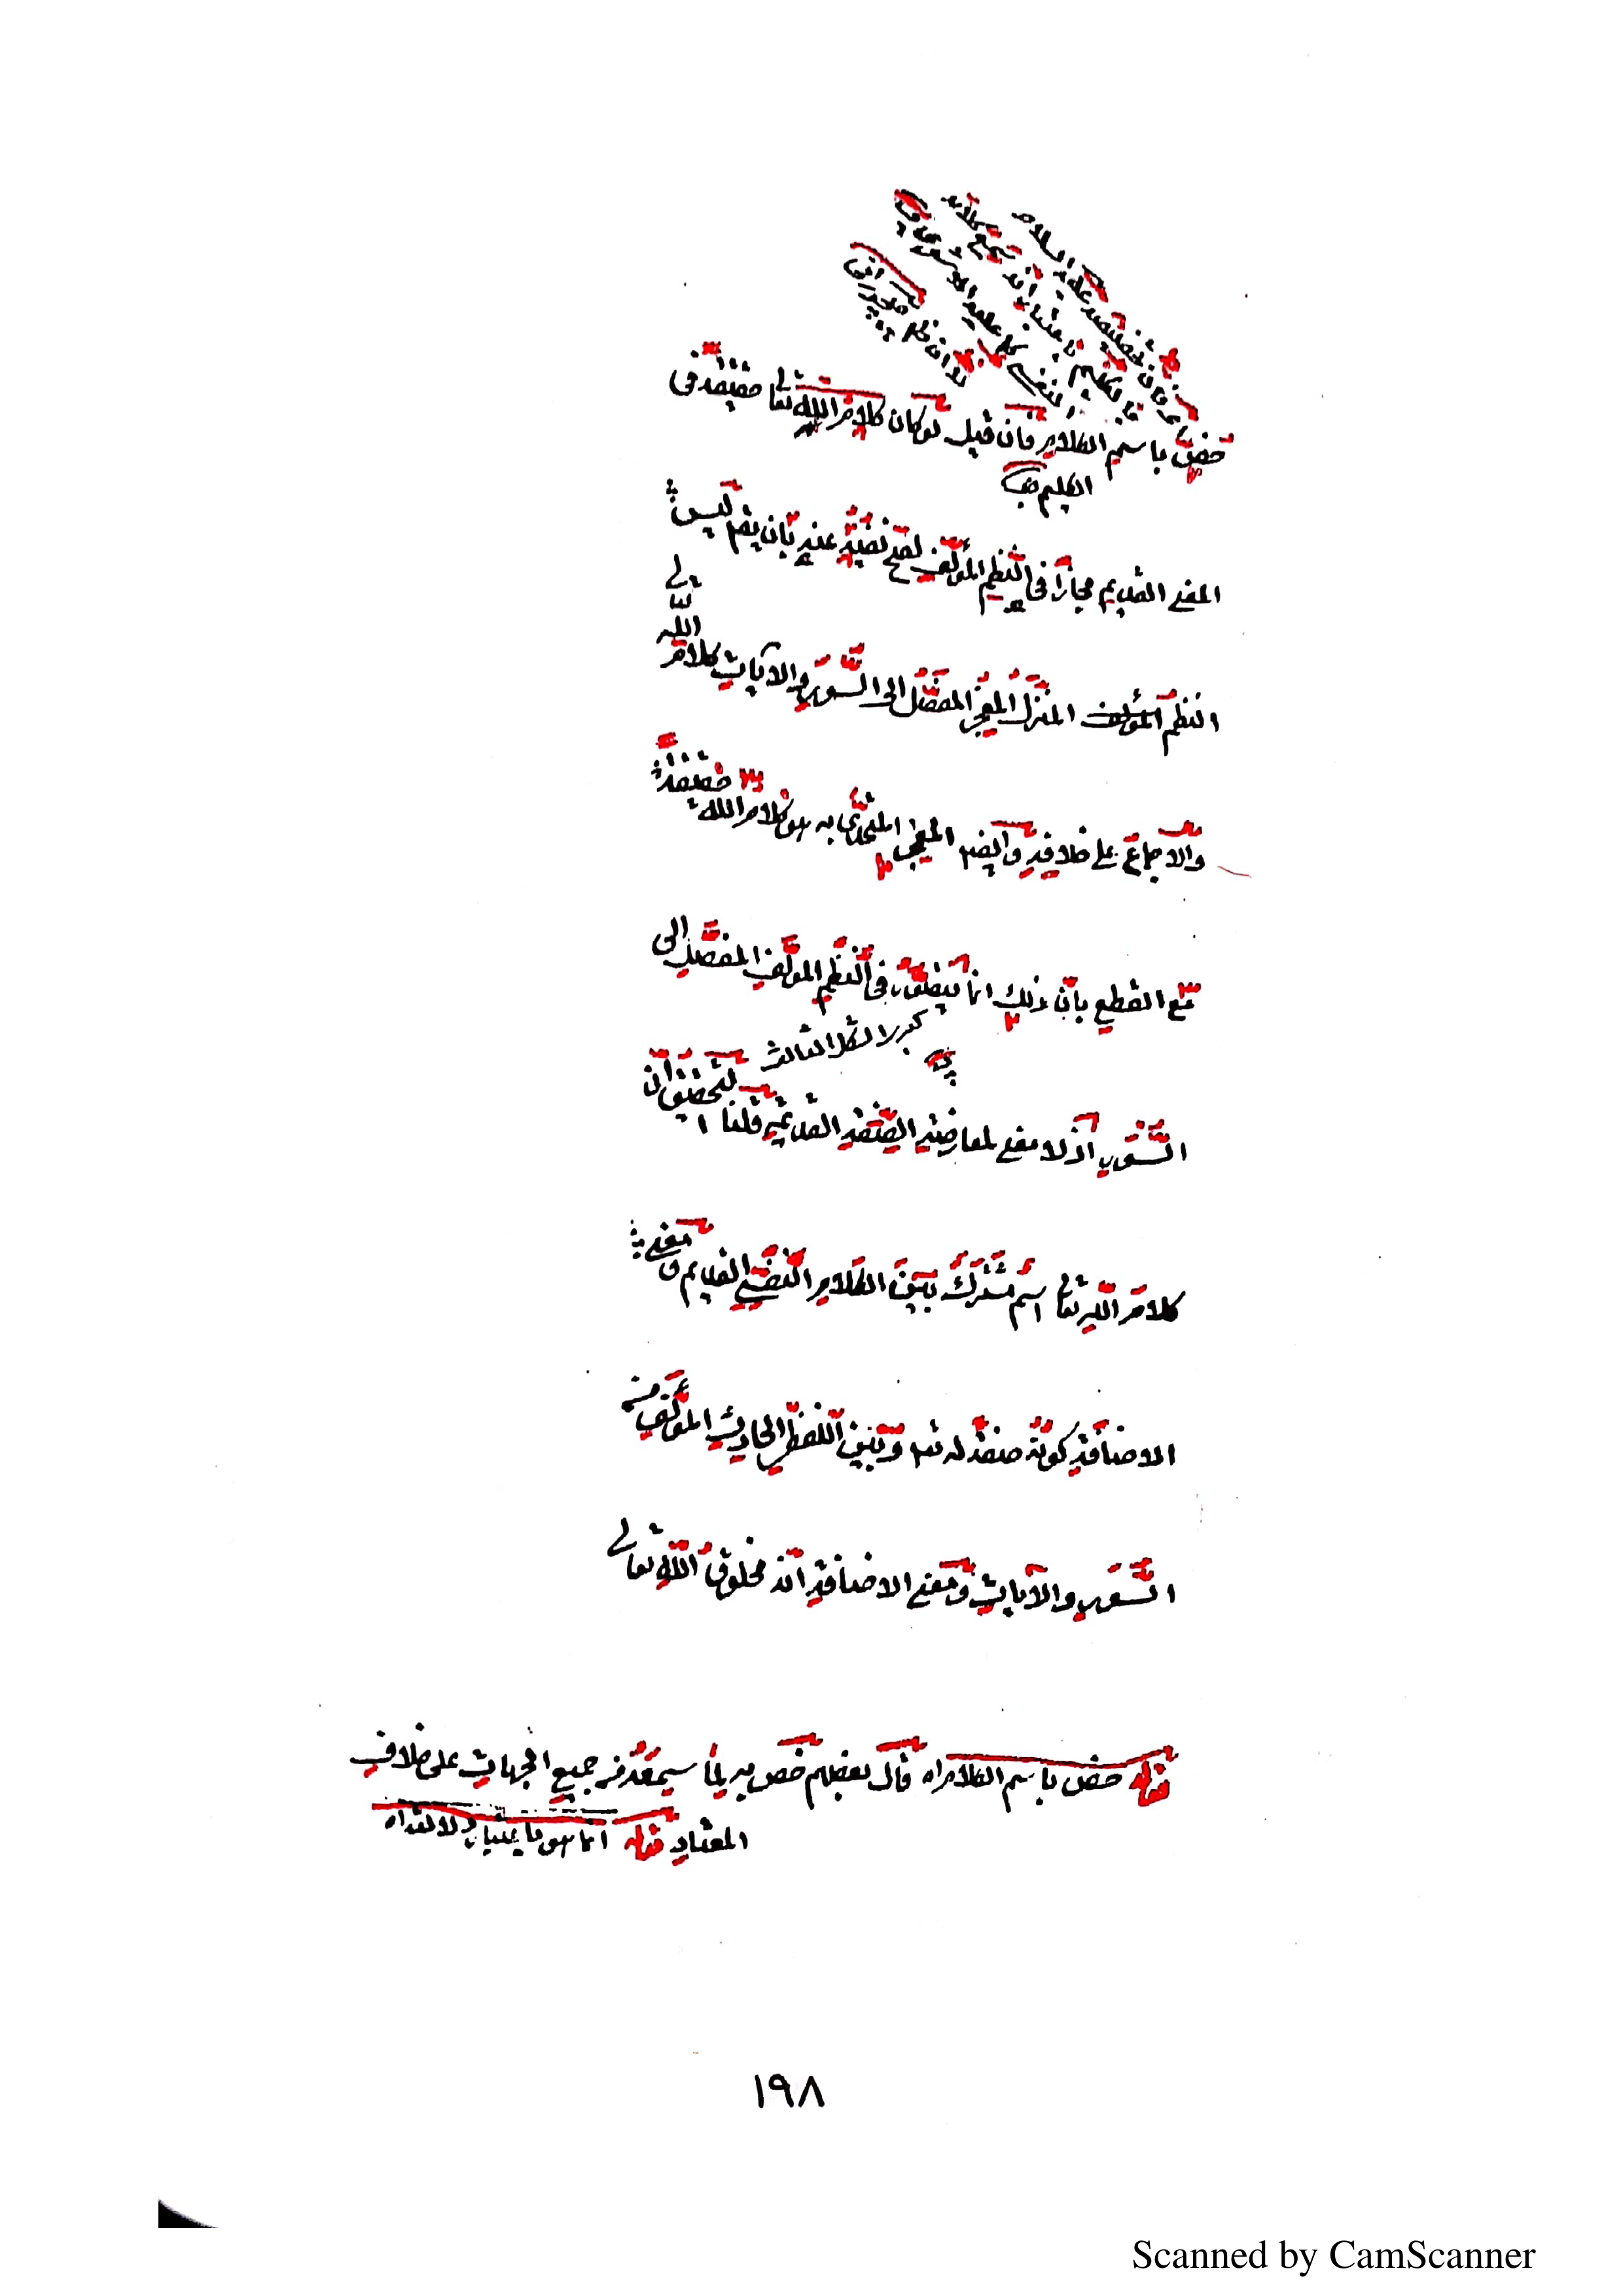 عليه السلام
خص باسم الكلام فان قيل لو كان كلام الله تعالى حقيقة فى
الكليم
المعنى القديم مجازا فى النظم المؤلف لصح نفيه عنه بان يقم ليس
النظم المؤلف المنزل المعجز المفصل الى السور والايات كلام الله تعالى
والاجماع على خلافه وايضا المعجز المتحدى به هو كلام الله تع حقيقة
مع القطع بان ذلك انما يتصور فى النظم المؤلف المفصل الى
كبرى الشكل الثالث
السور اذ لا معنى لمعارضة الصفة القديمة قلنا التحقيق ان
كلام الله تعالى اسم مشترك بين الكلام النفسى القديم ومعنى
الاضافة كونه صفة له تع وبين اللفظ الحادث المؤلف من
السور والايات ومعنى الاضافة انه مخلوق الله تعالى
قوله خص باسم الكلام اه قال بعضهم خص به لما سمعه من جميع الجهات على خلاف
المعتاد قوله انما هو باعتبار دلالته اه
١٩٨
Scanned by CamScanner